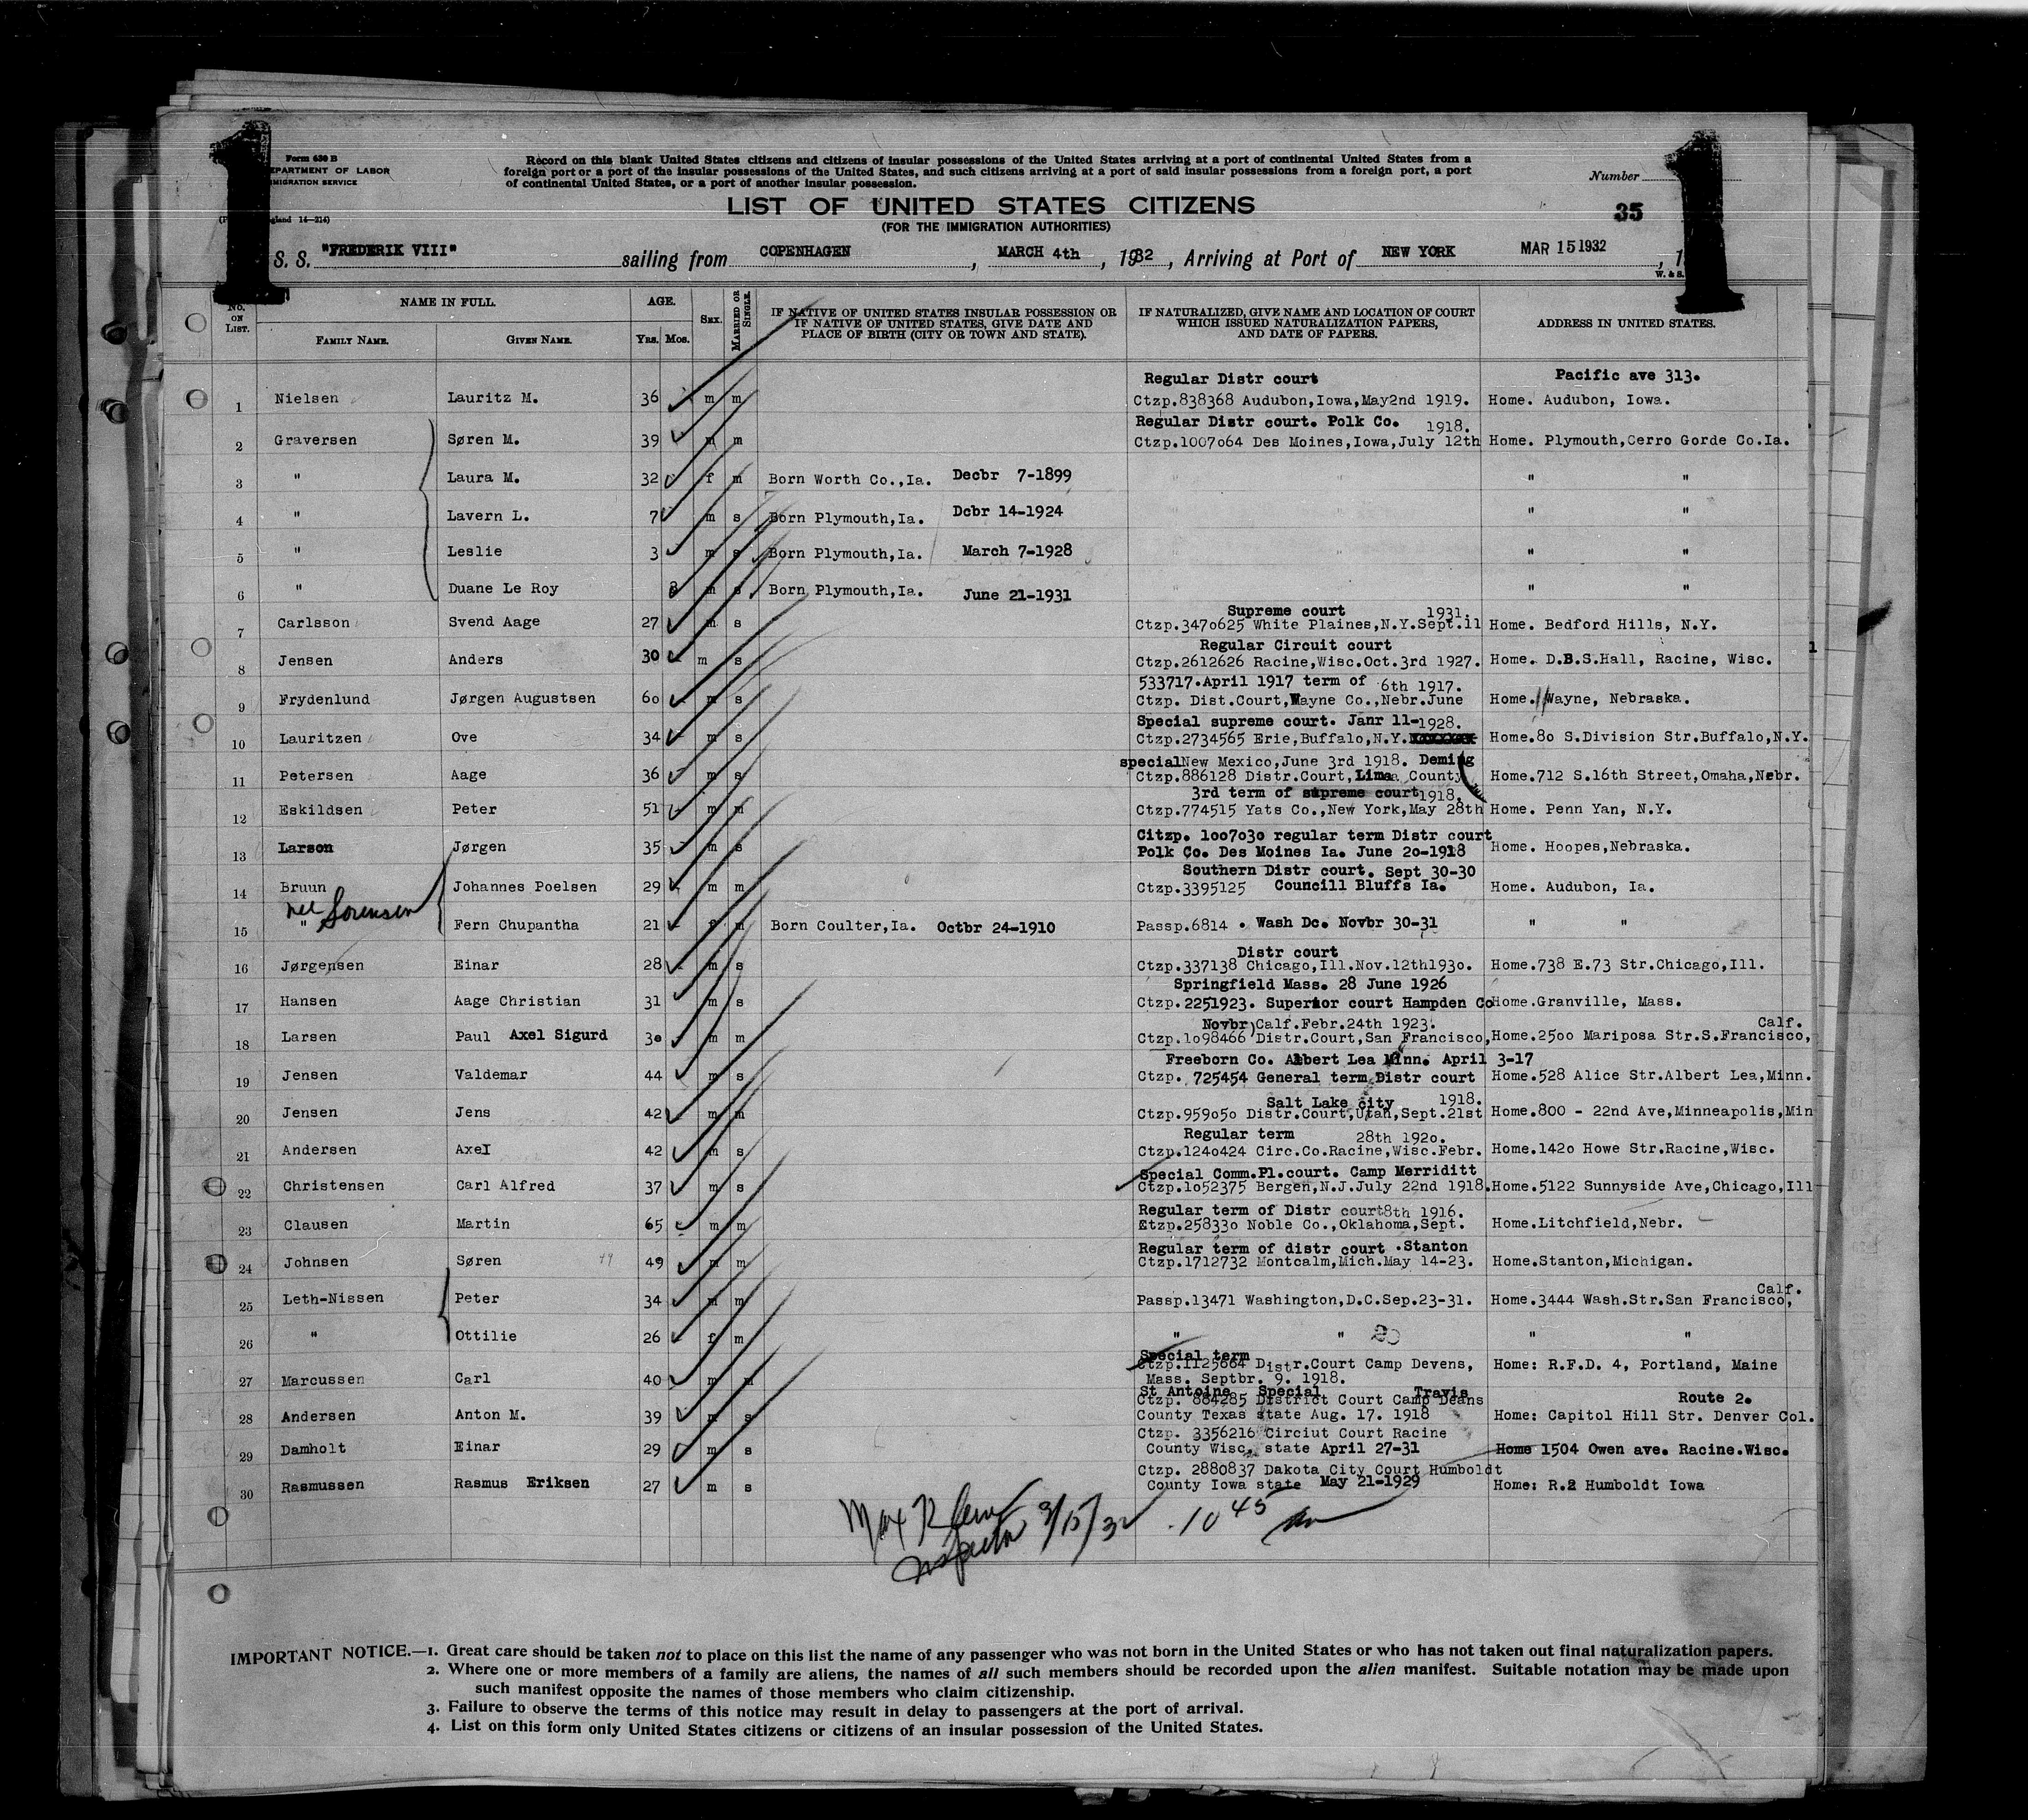 1 1
Form 630 B
EPARTMENT OF LABOR
MIGRATION SERVICE
gland 14—214)
Record on this blank United States citizens and citizens of insular possessions of the United States arriving at a port of continental United States from a
foreign port or a port of the insular possessions of the United States, and such citizens arriving at a port of said insular possessions from a foreign port, a port
of continental United States, or a port of another insular possession.
Number
LIST OF UNITED STATES CITIZENS
35
(FOR THE IMMIGRATION AUTHORITIES)
S. S. "FREDERIK VIII" sailing from COPENHAGEN, MARCH 4th, 1932, Arriving at Port of NEW YORK MAR 15 1932, 1
W. & S.
No. ON LIST.
NAME IN FULL.
FAMILY NAME. GIVEN NAME.
AGE.
Yrs. Mos.
SEX.
MARRIED OR SINGLE.
IF NATIVE OF UNITED STATES INSULAR POSSESSION OR
IF NATIVE OF UNITED STATES, GIVE DATE AND
PLACE OF BIRTH (CITY OR TOWN AND STATE).
IF NATURALIZED, GIVE NAME AND LOCATION OF COURT
WHICH ISSUED NATURALIZATION PAPERS,
AND DATE OF PAPERS.
ADDRESS IN UNITED STATES.
Regular Distr court Pacific ave 313.
1 Nielsen Lauritz M. 36 m m Ctzp.838368 Audubon,Iowa,May2nd 1919. Home. Audubon, Iowa.
Regular Distr court. Polk Co. 1918.
2 Graversen Søren M. 39 m m Ctzp.1007064 Des Moines,Iowa,July 12th Home. Plymouth,Cerro Gorde Co.Ia.
3 " Laura M. 32 f m Born Worth Co.,Ia. Decbr 7-1899 " "
4 " Lavern L. 7 m s Born Plymouth,Ia. Dcbr 14-1924 " "
5 " Leslie 3 m s Born Plymouth,Ia. March 7-1928 " "
6 " Duane Le Roy 8 m s Born Plymouth,Ia. June 21-1931 " "
Supreme court 1931.
7 Carlsson Svend Aage 27 m s Ctzp.3470625 White Plaines,N.Y.Sept.11 Home. Bedford Hills, N.Y.
Regular Circuit court
8 Jensen Anders 30 m s Ctzp.2612626 Racine,Wisc.Oct.3rd 1927. Home. D.B.S.Hall, Racine, Wisc.
533717.April 1917 term of 6th 1917.
9 Frydenlund Jørgen Augustsen 60 m s Ctzp. Dist.Court,Wayne Co.,Nebr.June Home. Wayne, Nebraska.
Special supreme court. Janr 11-1928.
10 Lauritzen Ove 34 m s Ctzp.2734565 Erie,Buffalo,N.Y. Home.80 S.Division Str.Buffalo,N.Y.
special New Mexico,June 3rd 1918. Deming
11 Petersen Aage 36 m s Ctzp.886128 Distr.Court, County Home.712 S.16th Street,Omaha,Nebr.
3rd term of supreme court 1918.
12 Eskildsen Peter 51 m m Ctzp.774515 Yats Co.,New York,May 28th Home. Penn Yan, N.Y.
Citzp. 1007030 regular term Distr court
13 Larson Jørgen 35 m s Polk Co. Des Moines Ia. June 20-1918 Home. Hoopes,Nebraska.
Southern Distr court. Sept 30-30
14 Bruun Johannes Poelsen 29 m m Ctzp.3395125 Councill Bluffs Ia. Home. Audubon, Ia.
nee Sorensen
15 " Fern Chupantha 21 f m Born Coulter,Ia. Octbr 24-1910 Passp.6814 . Wash Dc. Novbr 30-31 " "
Distr court
16 Jørgensen Einar 28 m s Ctzp.337138 Chicago,Ill.Nov.12th1930. Home.738 E.73 Str.Chicago,Ill.
Springfield Mass. 28 June 1926
17 Hansen Aage Christian 31 m s Ctzp.2251923. Superior court Hampden Co Home.Granville, Mass.
Novbr) Calf.Febr.24th 1923. Calf.
18 Larsen Paul Axel Sigurd 30 m m Ctzp.1098466 Distr.Court,San Francisco, Home.2500 Mariposa Str.S.Francisco,
Freeborn Co. Albert Lea Minn. April 3-17
19 Jensen Valdemar 44 m s Ctzp. 725454 General term Distr court Home.528 Alice Str.Albert Lea,Minn.
Salt Lake city 1918.
20 Jensen Jens 42 m m Ctzp.959050 Distr.Court,Utah,Sept.21st Home.800 - 22nd Ave,Minneapolis,Min
Regular term 28th 1920.
21 Andersen Axel 42 m s Ctzp.1240424 Circ.Co.Racine,Wisc.Febr. Home.1420 Howe Str.Racine,Wisc.
Special Comm.Pl.court. Camp Merriditt
22 Christensen Carl Alfred 37 m s Ctzp.1052375 Bergen,N.J.July 22nd 1918. Home.5122 Sunnyside Ave,Chicago,Ill
Regular term of Distr court 8th 1916.
23 Clausen Martin 65 m m Etzp.258330 Noble Co.,Oklahoma,Sept. Home.Litchfield,Nebr.
Regular term of distr court .Stanton
24 Johnsen Søren 49 49 m m Ctzp.1712732 Montcalm,Mich.May 14-23. Home.Stanton,Michigan.
Calf.
25 Leth-Nissen Peter 34 m m Passp.13471 Washington,D.C.Sep.23-31. Home.3444 Wash.Str.San Francisco,
26 " Ottilie 26 f m " " " "
Special term
27 Marcussen Carl 40 m m Ctzp.1125664 Distr.Court Camp Devens, Home: R.F.D. 4, Portland, Maine
Mass. Septbr. 9. 1918.
St Antoine Special Travis
Ctzp. 884285 District Court Camp Deans Route 2.
28 Andersen Anton M. 39 m s County Texas state Aug. 17. 1918 Home: Capitol Hill Str. Denver Col.
Ctzp. 3356216 Circiut Court Racine
29 Damholt Einar 29 m s County Wisc. state April 27-31 Home 1504 Owen ave. Racine.Wisc.
Ctzp. 2880837 Dakota City Court Humboldt
30 Rasmussen Rasmus Eriksen 27 m s County Iowa state May 21-1929 Home: R.2 Humboldt Iowa
Max
Inspector 3/15/32 10 45 am
IMPORTANT NOTICE.—1. Great care should be taken not to place on this list the name of any passenger who was not born in the United States or who has not taken out final naturalization papers.
2. Where one or more members of a family are aliens, the names of all such members should be recorded upon the alien manifest. Suitable notation may be made upon
such manifest opposite the names of those members who claim citizenship.
3. Failure to observe the terms of this notice may result in delay to passengers at the port of arrival.
4. List on this form only United States citizens or citizens of an insular possession of the United States.